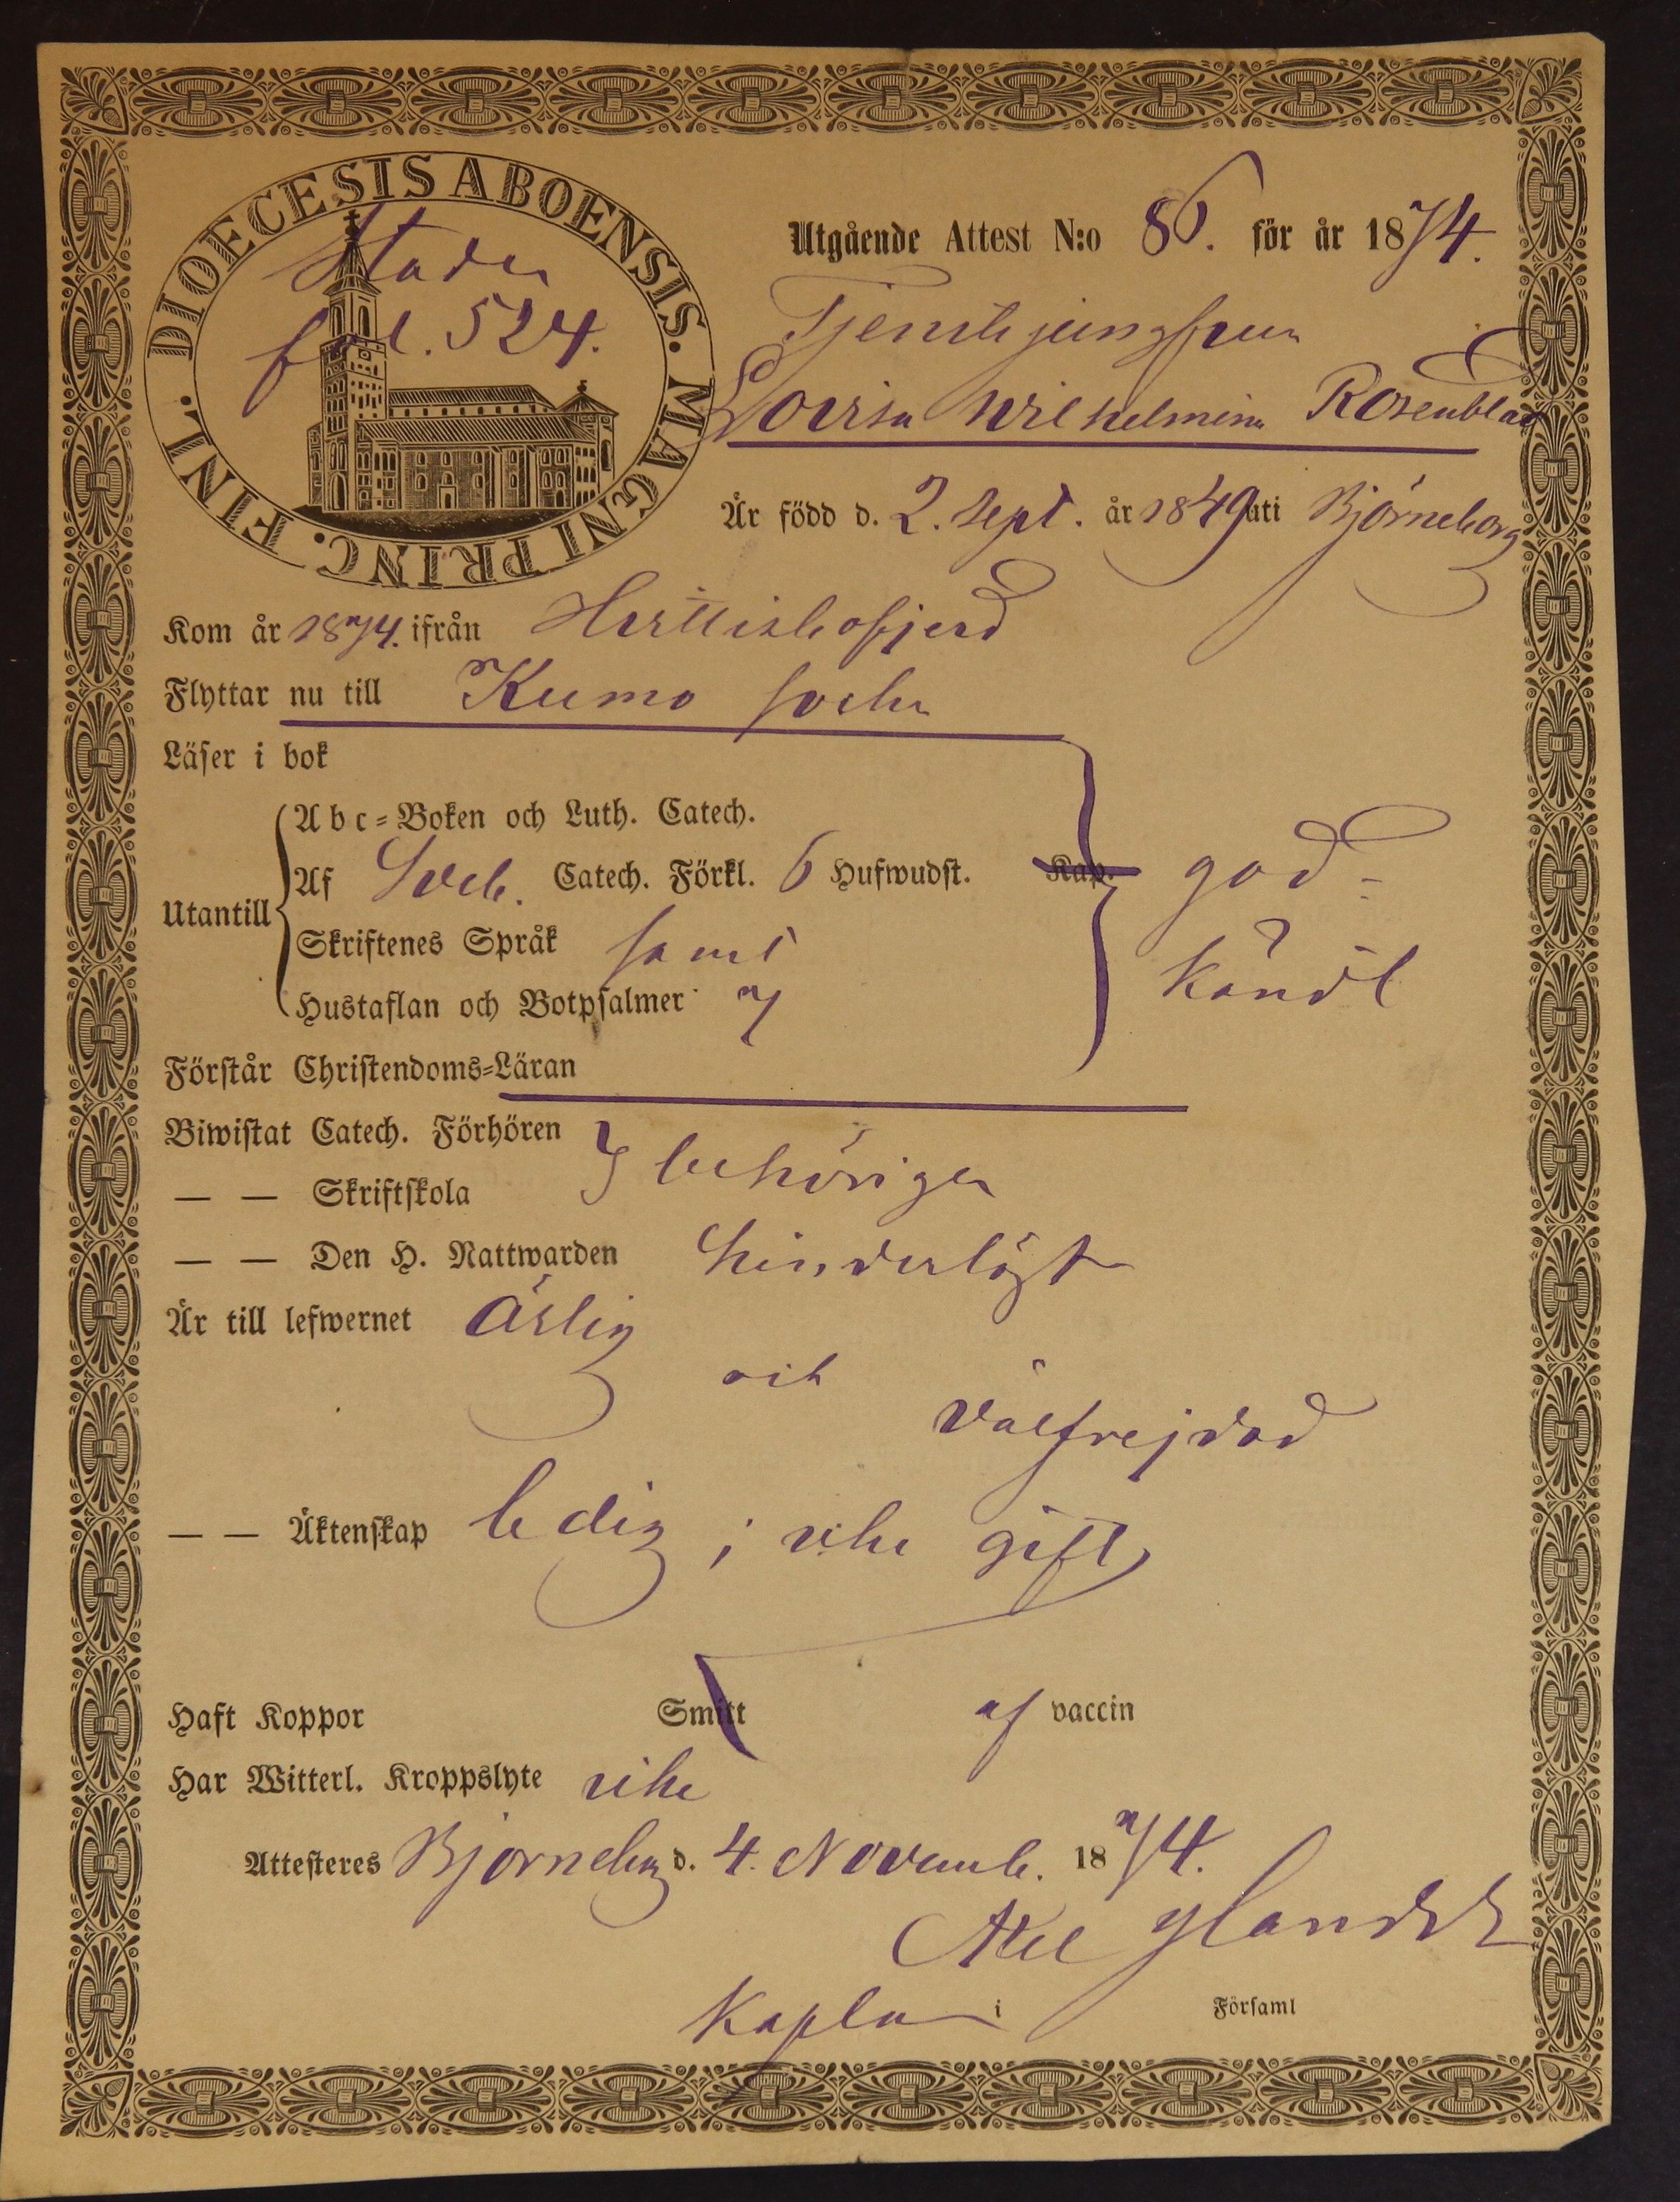 DIOECESIS ABOENSIS. MAGNI PRINC. FINL.
Staden
fol. 524.
Utgående Attest N:o 86. för år 1874.
Tjenstejungfrun
Lovisa Wilhelmina Rosenblad
Är född d. 2. Sept. år 1849 uti Björneborg
Kom år 1874. ifrån Hvittisbofjerd
Flyttar nu till Kumo socken
Läser i bok
Abc-Boken och Luth. Catech.
Utantill Af Sveb. Catech. Förkl. 6 Hufwudst. Kap. god-
Skriftenes Språk samt känd
Hustaflan och Botpsalmer 7
Förstår Christendoms-Läran
Biwistat Catech. Förhören
— — Skriftskola I behörigen
— — Den H. Nattwarden hinderlöst
Är till lefwernet ärlig
och
välfrejdad
— — Äktenskap ledig; icke gift
Haft Koppor Smitt af vaccin
Har Witterl. Kroppslyte icke
Attesteres Björneborg d. 4. Novemb. 1874.
Axel
Kaplan i Församl